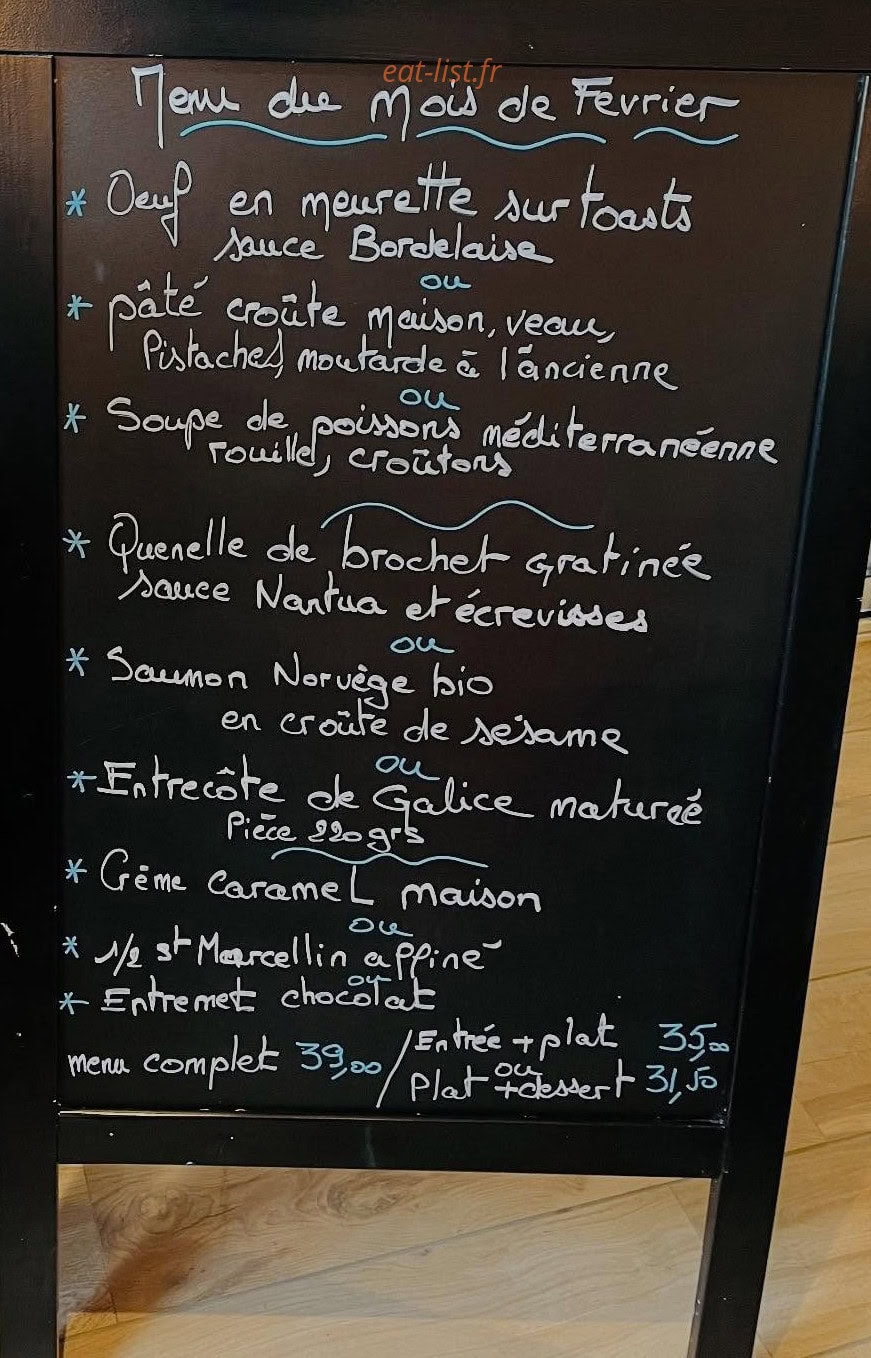 eat-list.fr
Menu du Mois de Février
* Oeuf en meurette sur toasts
sauce Bordelaise
ou
* pâté croûte maison, veau,
Pistaches, moutarde à l'ancienne
ou
* Soupe de poissons méditerranéenne
rouille, croûtons
* Quenelle de brochet gratinée
sauce Nantua et écrevisses
ou
* Saumon Norvège bio
en croûte de sésame
ou
* Entrecôte de Galice maturée
Pièce 220grs
* Crème caramel maison
ou
* 1/2 st Marcellin affiné
ou
* Entremet chocolat
menu complet 39,00 / Entrée + plat 35,00
ou
Plat + dessert 31,50